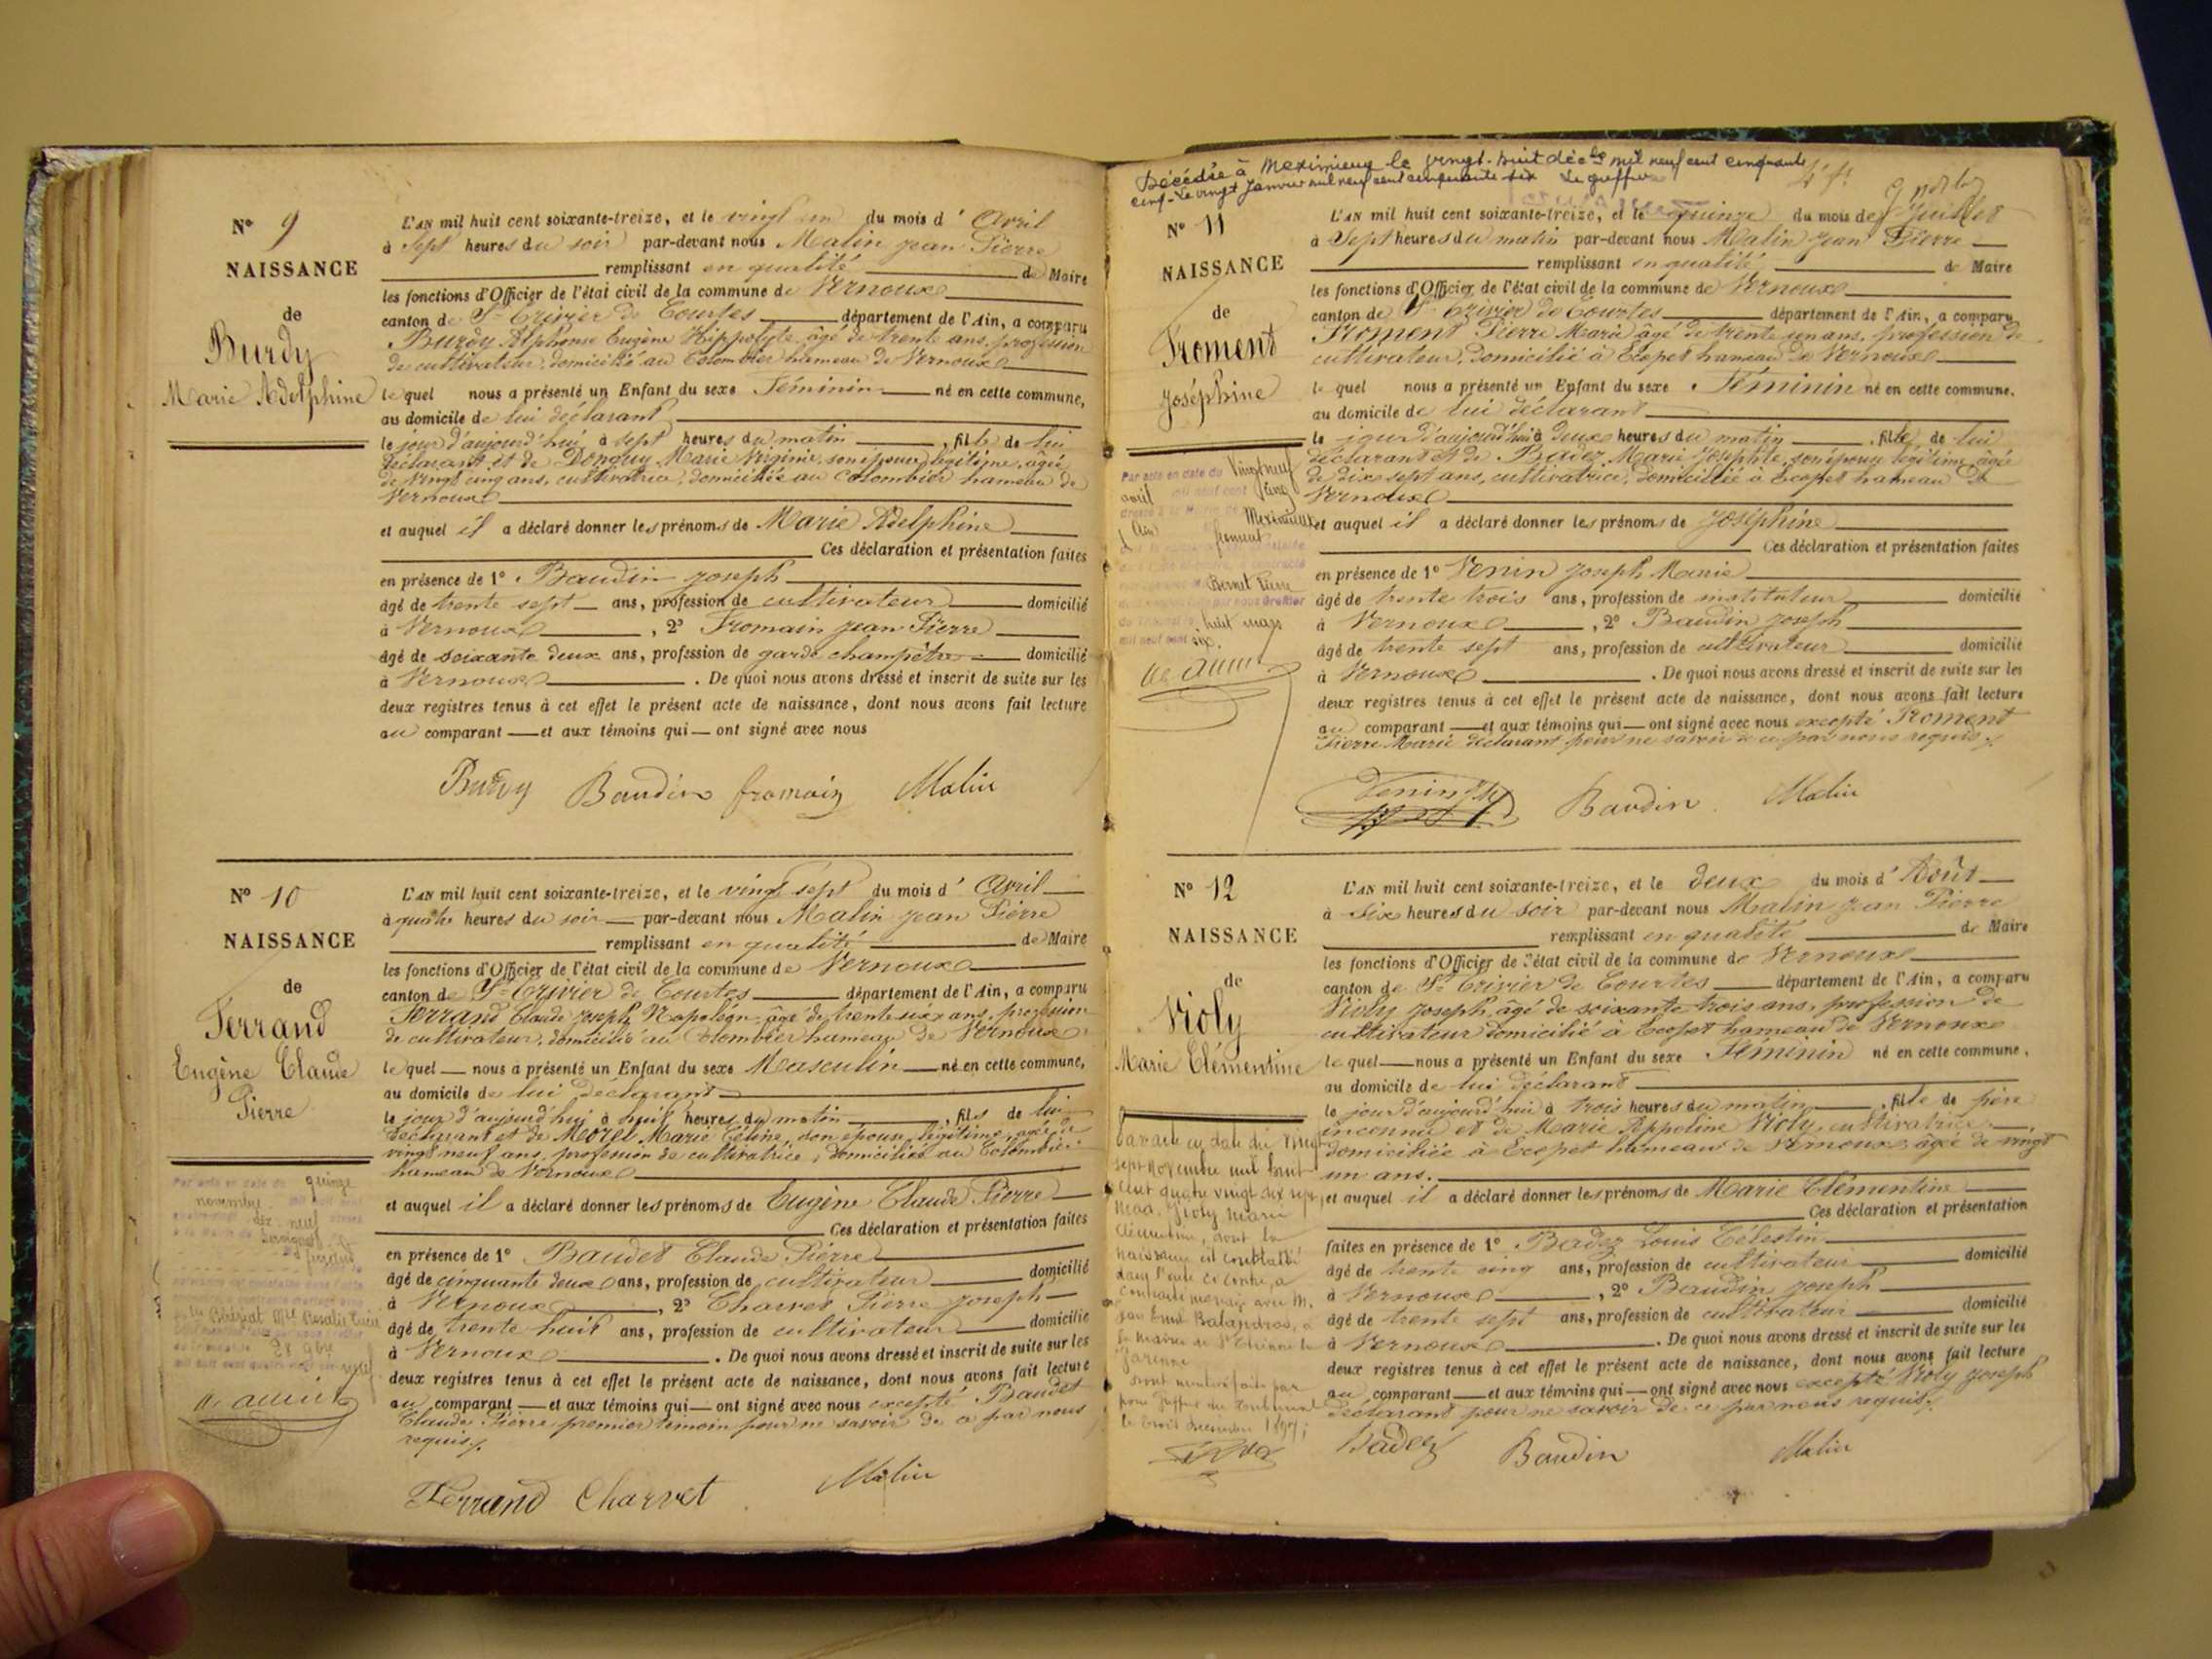 N° 9
NAISSANCE
de
Burdy
Marie Adelphine
L'AN mil huit cent soixante-treize, et le vingt un du mois d' Avril
à sept heures du soir par-devant nous Malin Jean Pierre
remplissant en qualité de Maire
les fonctions d'Officier de l'état civil de la commune de Vernoux
canton de St Trivier de Courtes département de l'Ain, a comparu
Burdy Alphonse Eugène Hippolyte, âgé de trente ans, profession
de cultivateur, domicilié au Colombier hameau de Vernoux
lequel nous a présenté un Enfant du sexe Féminin né en cette commune,
au domicile de lui déclarant
le jour d'aujourd'hui à sept heures du matin, fille de lui
déclarant et de Donguy Marie Virginie, son épouse légitime, âgée
de vingt cinq ans, cultivatrice, domiciliée au Colombier hameau de
Vernoux
et auquel il a déclaré donner les prénoms de Marie Adelphine
Ces déclaration et présentation faites
en présence de 1° Baudin Joseph
âgé de trente sept ans, profession de cultivateur domicilié
à Vernoux, 2° Fromain Jean Pierre
âgé de soixante deux ans, profession de garde champêtre domicilié
à Vernoux. De quoi nous avons dressé et inscrit de suite sur les
deux registres tenus à cet effet le présent acte de naissance, dont nous avons fait lecture
au comparant et aux témoins qui ont signé avec nous
Burdy Baudin fromain Malin
N° 10
NAISSANCE
de
Ferrand
Eugène Claude
Pierre
quinze
novembre
dix neuf
Ferrand
Rosalie
L'AN mil huit cent soixante-treize, et le vingt sept du mois d' Avril
à quatre heures du soir par-devant nous Malin Jean Pierre
remplissant en qualité de Maire
les fonctions d'Officier de l'état civil de la commune de Vernoux
canton de St Trivier de Courtes département de l'Ain, a comparu
Ferrand Claude Joseph Napoléon, âgé de trente six ans, profession
de cultivateur, domicilié au Colombier hameau de Vernoux
lequel nous a présenté un Enfant du sexe Masculin né en cette commune,
au domicile de lui déclarant
le jour d'aujourd'hui à huit heures du matin, fils de lui
déclarant et de Morel Marie Céline, son épouse légitime, âgée de
vingt neuf ans, profession de cultivatrice, domiciliée au Colombier
hameau de Vernoux
et auquel il a déclaré donner les prénoms de Eugène Claude Pierre
Ces déclaration et présentation faites
en présence de 1° Baudet Claude Pierre
âgé de cinquante deux ans, profession de cultivateur domicilié
à Vernoux, 2° Charvet Pierre Joseph
âgé de trente huit ans, profession de cultivateur domicilié
à Vernoux. De quoi nous avons dressé et inscrit de suite sur les
deux registres tenus à cet effet le présent acte de naissance, dont nous avons fait lecture
au comparant et aux témoins qui ont signé avec nous excepté Baudet
Claude Pierre premier témoin pour ne savoir de ce par nous
requis
Ferrand Charvet Malin
Décédée à Meximieux le vingt-huit décbre mil neuf cent cinquante
cinq - Le vingt Janvier mil neuf cent cinquante six Le greffier
N° 11
NAISSANCE
de
Froment
Joséphine
Par acte en date du Vingt neuf
avril
Meximieux
(Ain)
froment
Bernet Pierre
huit mars
six
L'AN mil huit cent soixante-treize, et le quinze du mois de Juillet
à Sept heures du matin par-devant nous Malin Jean Pierre
remplissant en qualité de Maire
les fonctions d'Officier de l'état civil de la commune de Vernoux
canton de St Trivier de Courtes département de l'Ain, a comparu
Froment Pierre Marie âgé de trente un ans, profession de
cultivateur, domicilié à Ecopet hameau de Vernoux
lequel nous a présenté un Enfant du sexe Féminin né en cette commune.
au domicile de lui déclarant
le jour d'aujourd'hui à deux heures du matin, fille de lui
déclarant et de Badez Marie Josephte, son épouse légitime âgée
de dix sept ans, cultivatrice, domiciliée à Ecopet hameau de
Vernoux
et auquel il a déclaré donner les prénoms de Joséphine
Ces déclaration et présentation faites
en présence de 1° Venin Joseph Marie
âgé de trente trois ans, profession de instituteur domicilié
à Vernoux, 2° Baudin Joseph
âgé de trente sept ans, profession de cultivateur domicilié
à Vernoux. De quoi nous avons dressé et inscrit de suite sur les
deux registres tenus à cet effet le présent acte de naissance, dont nous avons fait lecture
au comparant et aux témoins qui ont signé avec nous excepté Froment
Pierre Marie déclarant pour ne savoir de ce par nous requis
Venin Baudin Malin
N° 12
NAISSANCE
de
Violy
Marie Clémentine
Par acte en date du vingt
sept Novembre mil huit
cent quatre vingt dix sept,
Violy Marie
Clémentine, dont la
naissance est constatée
dans l'acte ci contre, a
contracté mariage avec M.
à
la mairie de St Etienne
L'AN mil huit cent soixante-treize, et le deux du mois d' Août
à six heures du soir par-devant nous Malin Jean Pierre
remplissant en qualité de Maire
les fonctions d'Officier de l'état civil de la commune de Vernoux
canton de St Trivier de Courtes département de l'Ain, a comparu
Violy Joseph, âgé de soixante trois ans, profession de
cultivateur domicilié à Ecopet hameau de Vernoux
lequel nous a présenté un Enfant du sexe Féminin né en cette commune,
au domicile de lui déclarant
le jour d'aujourd'hui à trois heures du matin, fille de père
inconnu et de Marie Appoline Violy, cultivatrice,
domiciliée à Ecopet hameau de Vernoux, âgée de vingt
un ans.
et auquel il a déclaré donner les prénoms de Marie Clémentine
Ces déclaration et présentation
faites en présence de 1° Badez Louis Célestin
âgé de trente cinq ans, profession de cultivateur domicilié
à Vernoux, 2° Baudin Joseph
âgé de trente sept ans, profession de cultivateur domicilié
à Vernoux. De quoi nous avons dressé et inscrit de suite sur les
deux registres tenus à cet effet le présent acte de naissance, dont nous avons fait lecture
au comparant et aux témoins qui ont signé avec nous excepté Violy Joseph
déclarant pour ne savoir de ce par nous requis
Badez Baudin Malin